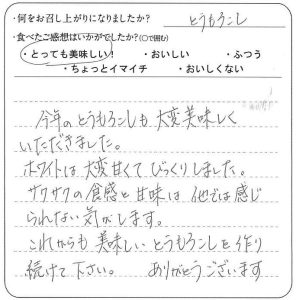 ・何をお召し上がりになりましたか？ とうもろこし
・食べたご感想はいかがでしたか？(○で囲む)
・とっても美味しい！ ・おいしい ・ふつう
・ちょっとイマイチ ・おいしくない
今年のとうもろこしも大変美味しく
いただきました。
ホワイトは大変甘くてびっくりしました。
サクサクの食感と甘味は他では感じ
られない気がします。
これからも美味しいとうもろこしを作り
続けて下さい。 ありがとうございます